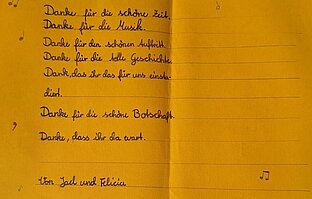 Danke für die schöne Zeit.
Danke für die Musik.
Danke für den schönen Auftritt.
Danke für die tolle Geschichte.
Dank, das ihr das für uns einstu-
diert.
Danke für die schöne Botschaft.
Danke, dass ihr da wart.
Von Jael und Felicia